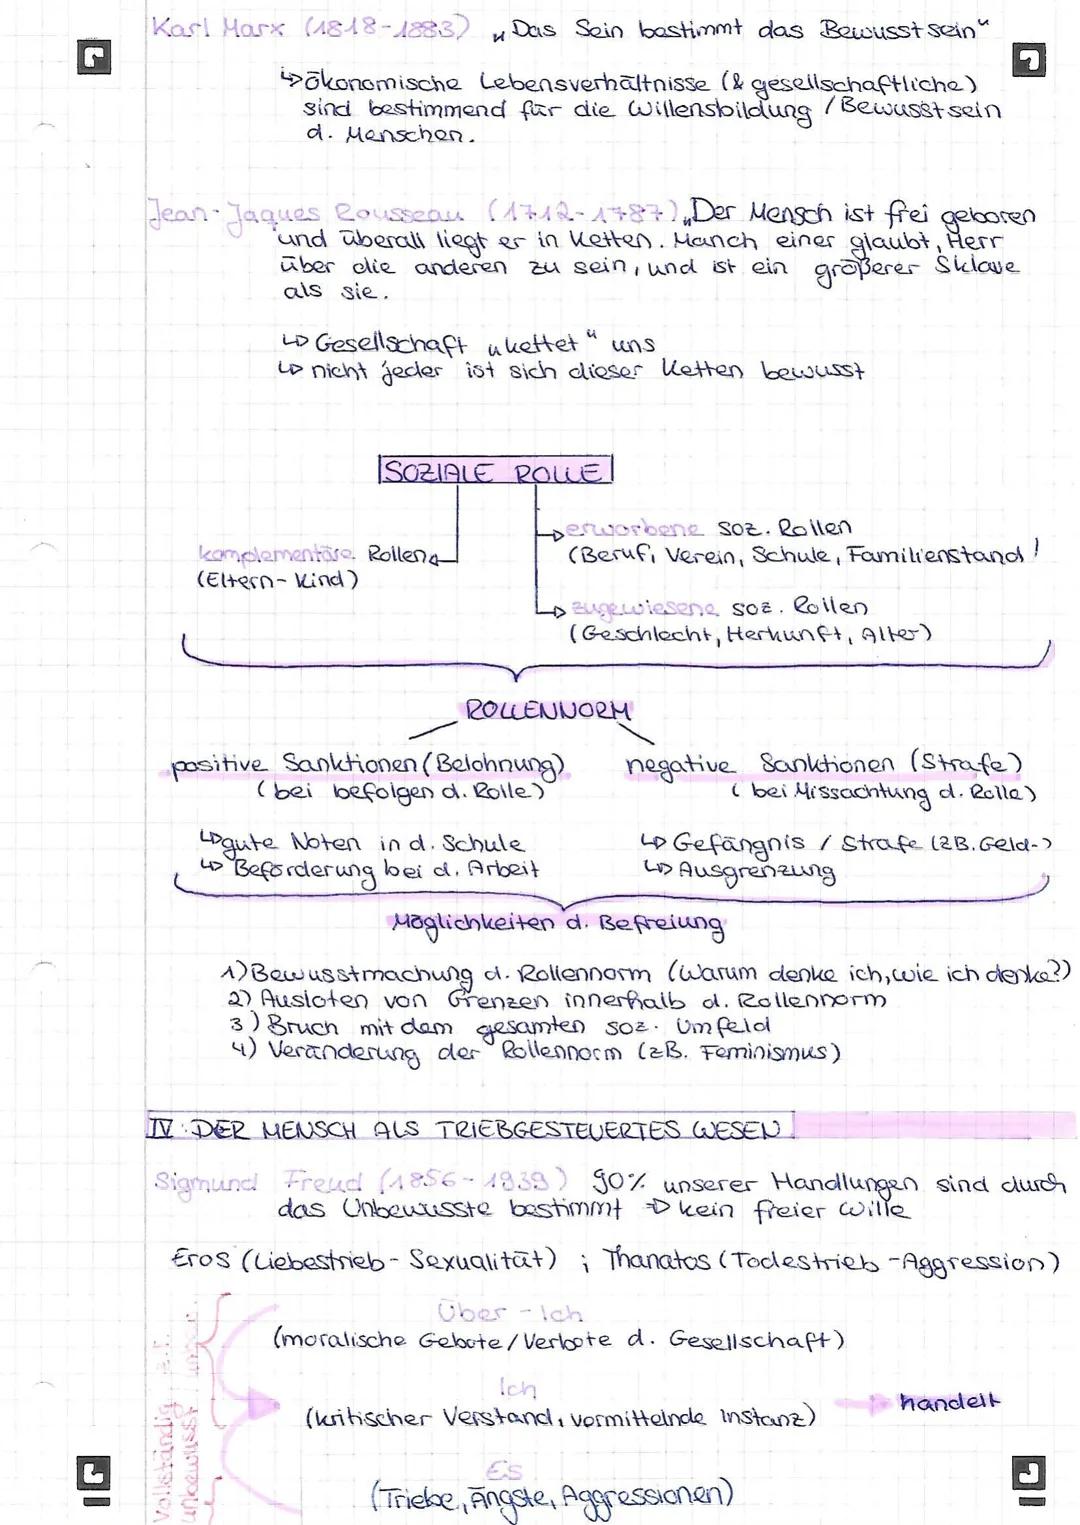 Karl Marx (1818-1883) „Das Sein bestimmt das Bewusstsein“
↳ökonomische Lebensverhältnisse (& gesellschaftliche)
sind bestimmend für die Willensbildung / Bewusstsein
d. Menschen.
Jean-Jaques Rousseau (1712-1787) „Der Mensch ist frei geboren
und überall liegt er in Ketten. Manch einer glaubt, Herr
über die anderen zu sein, und ist ein größerer Sklave
als sie.
↳ Gesellschaft „kettet“ uns
↳ nicht jeder ist sich dieser Ketten bewusst
SOZIALE ROLLE
erworbene soz. Rollen
komplementäre Rollen
(Beruf, Verein, Schule, Familienstand)
(Eltern-Kind)
zugewiesene soz. Rollen
(Geschlecht, Herkunft, Alter)
ROLLENNORM
positive Sanktionen (Belohnung) negative Sanktionen (Strafe)
(bei befolgen d. Rolle) (bei Missachtung d. Rolle)
↳gute Noten in d. Schule ↳ Gefängnis / Strafe (zB. Geld-)
↳ Beförderung bei d. Arbeit ↳ Ausgrenzung
Möglichkeiten d. Befreiung
1) Bewusstmachung d. Rollennorm (Warum denke ich, wie ich denke?)
2) Ausloten von Grenzen innerhalb d. Rollennorm
3) Bruch mit dem gesamten soz. Umfeld
4) Veränderung der Rollennorm (zB. Feminismus)
IV: DER MENSCH ALS TRIEBGESTEUERTES WESEN
Sigmund Freud (1856-1939) 90% unserer Handlungen sind durch
das Unbewusste bestimmt ⇒ kein freier Wille
Eros (Liebestrieb-Sexualität) ; Thanatos (Todestrieb-Aggression)
Über-Ich
(moralische Gebote/Verbote d. Gesellschaft)
Ich
(kritischer Verstand, vermittelnde Instanz) → handelt
Es
(Triebe, Ängste, Aggressionen)
vollständig
unbewusst
z.T.